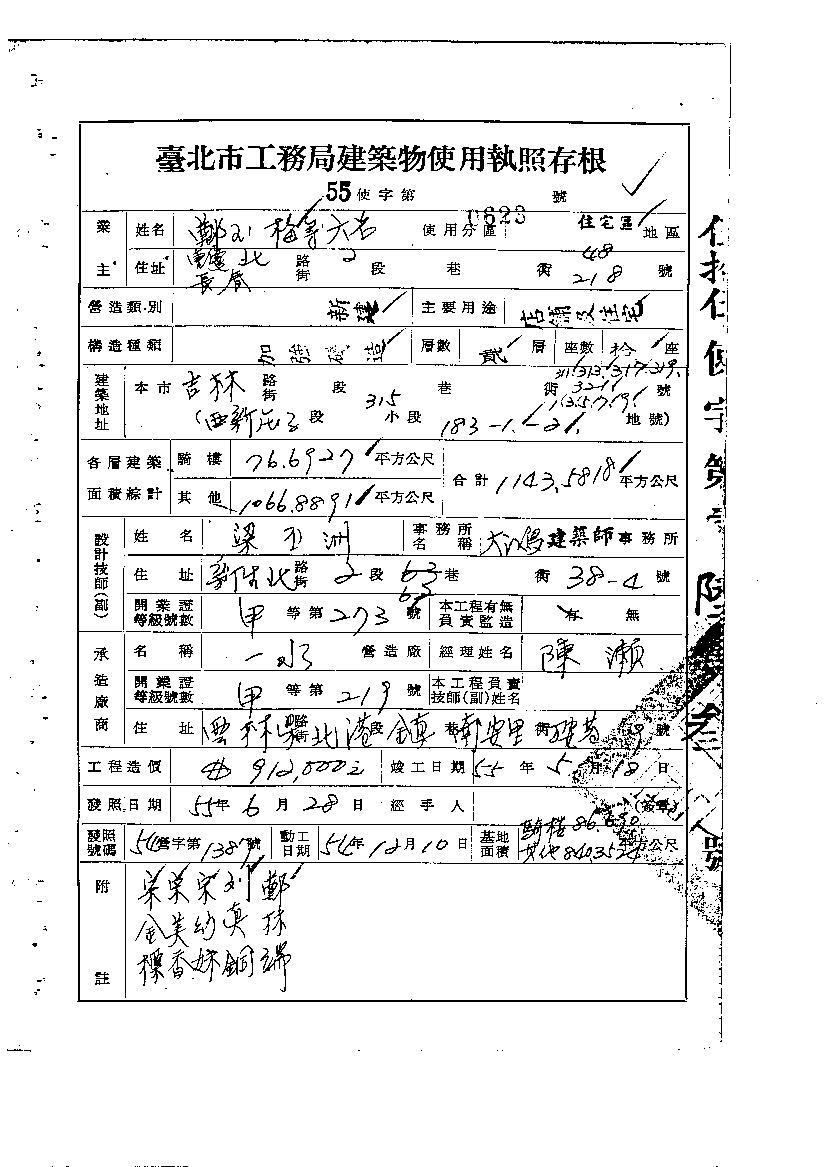 臺北市工務局建築物使用執照存根
55 使字第 0623 號
業主 姓名 鄭 梅等六名 使用分區 住宅區 地區
住址 北 路街 2 段 巷 衖 48 218 號
長春
營造類別 新建 主要用途 店舖及住宅
構造種類 加強磚造 層數 貳 層 座數 拾 座
建築地址 本市 吉林 路街 段 315 巷 衖 311.313.317.319. 321 1.3.5.7.9. 號
(西新庄子 段 小段 183-1.-21. 地號)
各層建築面積綜計 騎樓 76.6927 平方公尺 合計 1143.5818 平方公尺
其他 1066.8891 平方公尺
設計技師(副) 姓名 梁 洲 事務所名稱 建築師事務所
住址 新生北 路街 2 段 63 巷 衖 38-4 號
63
開業證等級號數 甲 等第 273 號 本工程有無負責監造 有 無
承造廠商 名稱 一 營造廠 經理姓名 陳瀨
開業證等級號數 甲 等第 219 號 本工程負責技師(副)姓名
住址 雲林縣北港鎮 路街 段 巷 南安里 衖 9 號
工程造價 912,000元 竣工日期 55 年 5 月 18 日
發照日期 55 年 6 月 28 日 經手人 (簽章)
發照號碼 54 營字第 1387 號 動工日期 54 年 12 月 10 日 基地面積 騎樓 86.630 其他 840.352 平方公尺
附註 宋榮宋刘鄭
金美幼真林
標香妹銅端
使字第 號